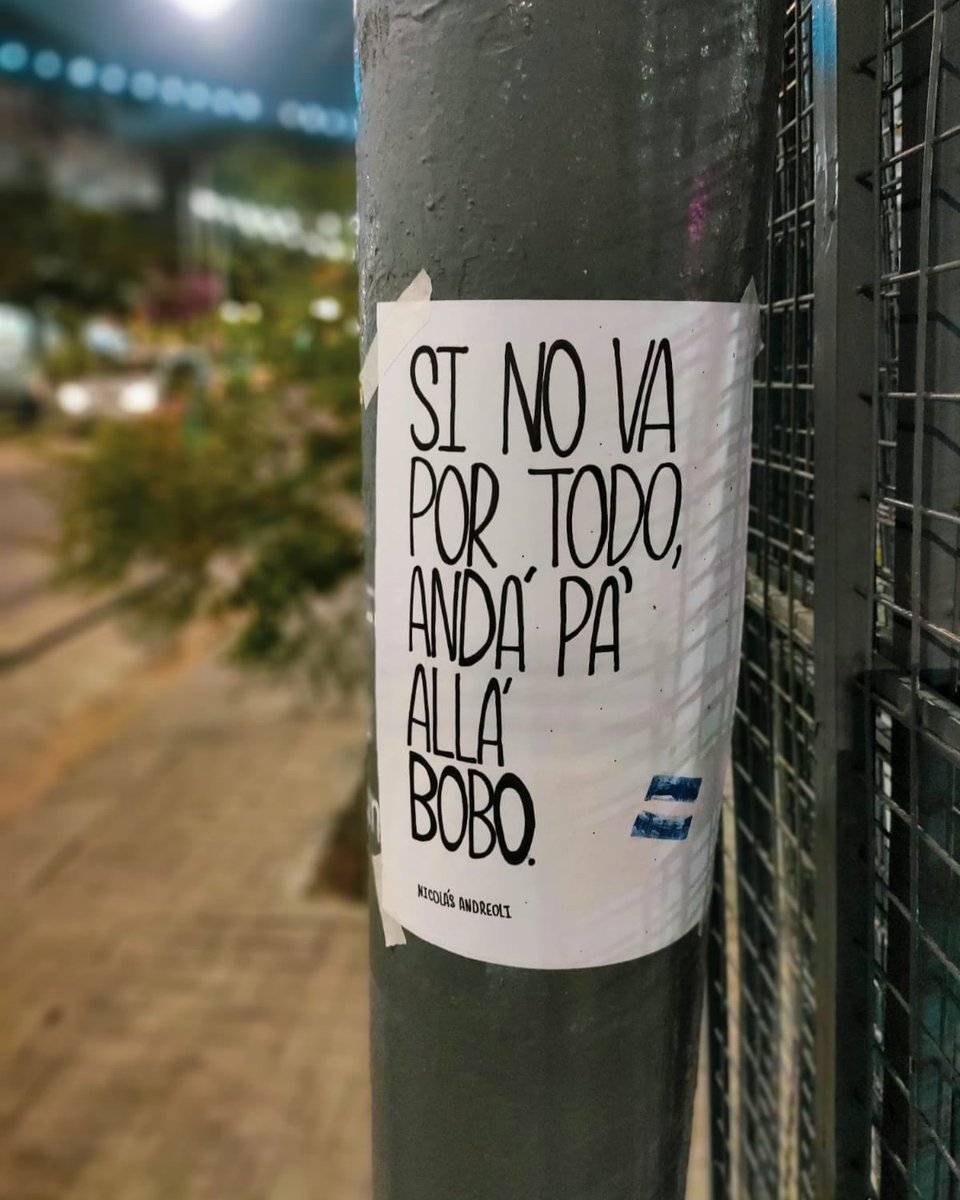 SI NO VA
POR TODO,
ANDÁ PA'
ALLÁ
BOBO.
NICOLÁS ANDREOLI